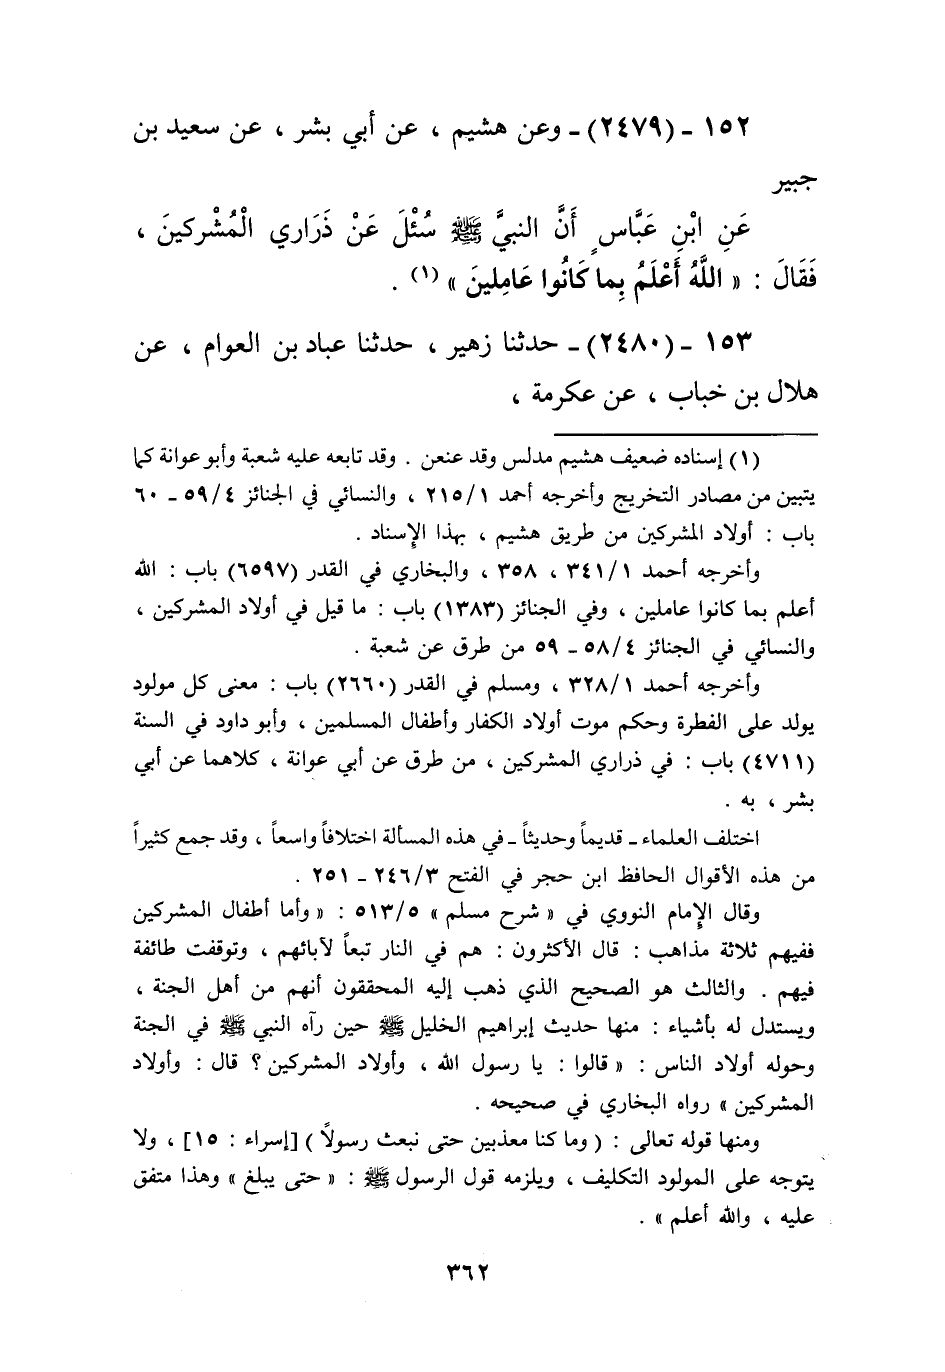 ١٥٢ - (٢٤٧٩) - وعن هشيم ، عن أبي بشر ، عن سعيد بن
جبير
عَنِ ابْنِ عَبَّاسٍ أَنَّ النبيَّ ﷺ سُئْلَ عَنْ ذَرَاري الْمُشْركينَ ،
فَقَالَ : « اللَّهُ أَعْلَمُ بِما كَانُوا عَامِلينَ » (١) .
١٥٣ - (٢٤٨٠) - حدثنا زهير ، حدثنا عباد بن العوام ، عن
هلال بن خباب ، عن عكرمة ،
(١) إسناده ضعيف هشيم مدلس وقد عنعن . وقد تابعه عليه شعبة وأبو عوانة كما
يتبين من مصادر التخريج وأخرجه أحمد ٢١٥/١ ، والنسائي في الجنائز ٥٩/٤ - ٦٠
باب : أولاد المشركين من طريق هشيم ، بهذا الإسناد .
وأخرجه أحمد ٣٤١/١ ، ٣٥٨ ، والبخاري في القدر (٦٥٩٧) باب : الله
أعلم بما كانوا عاملين ، وفي الجنائز (١٣٨٣) باب : ما قيل في أولاد المشركين ،
والنسائي في الجنائز ٥٨/٤ - ٥٩ من طرق عن شعبة .
وأخرجه أحمد ٣٢٨/١ ، ومسلم في القدر (٢٦٦٠) باب : معنى كل مولود
يولد على الفطرة وحكم موت أولاد الكفار وأطفال المسلمين ، وأبو داود في السنة
(٤٧١١) باب : في ذراري المشركين ، من طرق عن أبي عوانة ، كلاهما عن أبي
بشر ، به .
اختلف العلماء - قديماً وحديثاً - في هذه المسألة اختلافاً واسعاً ، وقد جمع كثيراً
من هذه الأقوال الحافظ ابن حجر في الفتح ٢٤٦/٣ - ٢٥١ .
وقال الإمام النووي في « شرح مسلم » ٥١٣/٥ : « وأما أطفال المشركين
ففيهم ثلاثة مذاهب : قال الأكثرون : هم في النار تبعاً لآبائهم ، وتوقفت طائفة
فيهم . والثالث هو الصحيح الذي ذهب إليه المحققون أنهم من أهل الجنة ،
ويستدل له بأشياء : منها حديث إبراهيم الخليل ﷺ حين رآه النبي ﷺ في الجنة
وحوله أولاد الناس : « قالوا : يا رسول الله ، وأولاد المشركين ؟ قال : وأولاد
المشركين » رواه البخاري في صحيحه .
ومنها قوله تعالى : ( وما كنا معذبين حتى نبعث رسولاً ) [إسراء : ١٥] ، ولا
يتوجه على المولود التكليف ، ويلزمه قول الرسول ﷺ : « حتى يبلغ » وهذا متفق
عليه ، والله أعلم » .
٣٦٢